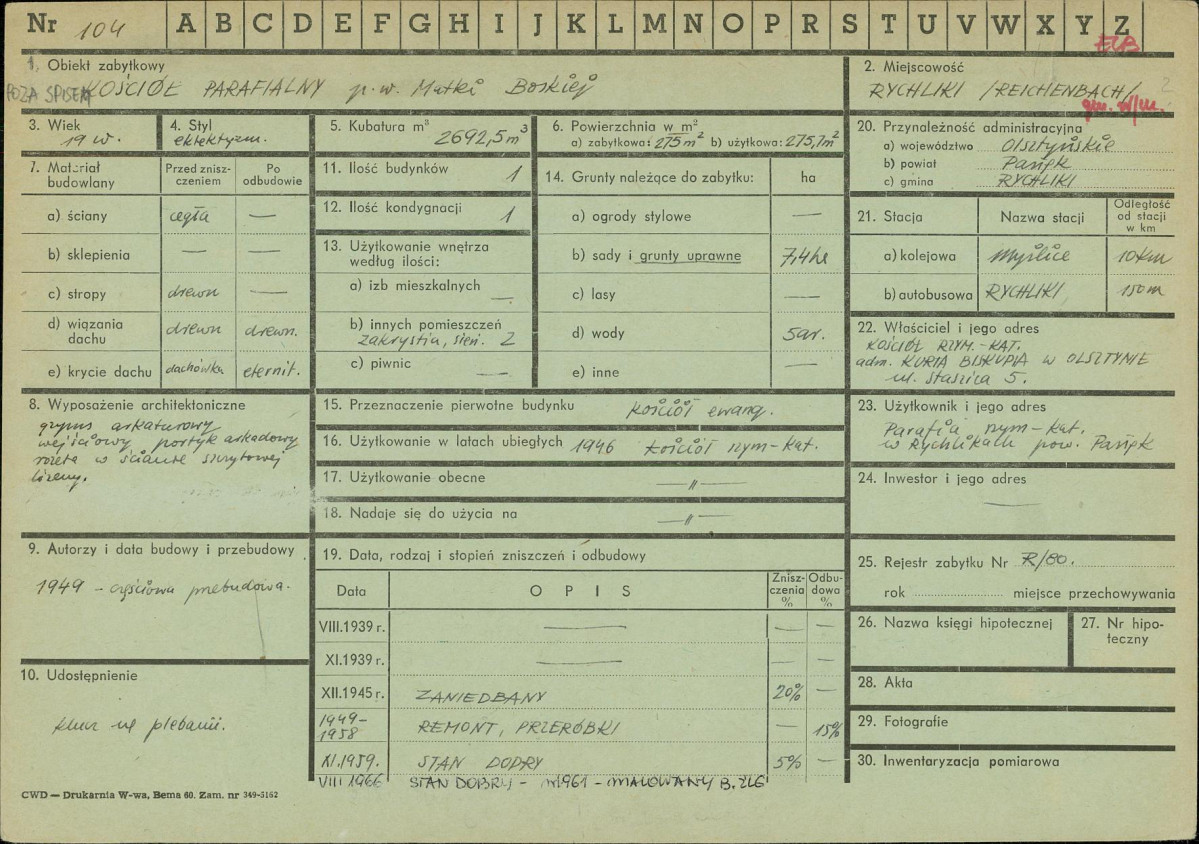 Nr 104 A B C D E F G H I J K L M N O P R S T U V W X Y Z
ELB
1. Obiekt zabytkowy
POZA SPISEM
KOŚCIÓŁ PARAFIALNY p.w. Matki Boskiej
2. Miejscowość
RYCHLIKI /REICHENBACH/
gm. w/m.
3. Wiek
19 w.
4. Styl
eklektyzm.
5. Kubatura m³
2692,5 m³
6. Powierzchnia w m²
a) zabytkowa: 275 m² b) użytkowa: 275,7 m²
20. Przynależność administracyjna
a) województwo Olsztyńskie
b) powiat Pasłęk
c) gmina RYCHLIKI
7. Materiał budowlany
Przed zniszczeniem
Po odbudowie
a) ściany cegła —
b) sklepienia — —
c) stropy drewn —
d) wiązania dachu drewn drewn.
e) krycie dachu dachówka eternit.
11. Ilość budynków 1
12. Ilość kondygnacji 1
13. Użytkowanie wnętrza
według ilości:
a) izb mieszkalnych —
b) innych pomieszczeń
zakrystia, sień. 2
c) piwnic —
14. Grunty należące do zabytku: ha
a) ogrody stylowe —
b) sady i grunty uprawne 7,4 ha
c) lasy —
d) wody 5 ar.
e) inne —
21. Stacja Nazwa stacji Odległość od stacji w km
a) kolejowa Myślice 10 km
b) autobusowa RYCHLIKI 150 m
22. Właściciel i jego adres
KOŚCIÓŁ RZYM.-KAT.
adm. KURIA BISKUPIA w OLSZTYNIE
ul. Staszica 5.
8. Wyposażenie architektoniczne
gzyms arkaturowy
wejściowy portyk arkadowy
rozeta w ścianie szczytowej
lizeny.
15. Przeznaczenie pierwotne budynku kościół ewang.
16. Użytkowanie w latach ubiegłych 1946 kościół rzym-kat.
17. Użytkowanie obecne —〃—
18. Nadaje się do użycia na —〃—
23. Użytkownik i jego adres
Parafia rzym-kat.
w Rychlikach pow. Pasłęk
24. Inwestor i jego adres
—
9. Autorzy i data budowy i przebudowy
1949 – częściowa przebudowa.
19. Data, rodzaj i stopień zniszczeń i odbudowy
Data OPIS Zniszczenia % Odbudowa %
VIII.1939 r. — — —
XI.1939 r. — — —
XII.1945 r. ZANIEDBANY 20% —
1949-1958 REMONT, PRZERÓBKI — 15%
XI.1959. STAN DOBRY 5% —
VIII 1966 STAN DOBRY – w 1961 – MALOWANY B. ŹLE
25. Rejestr zabytku Nr R/80.
rok miejsce przechowywania
26. Nazwa księgi hipotecznej
27. Nr hipoteczny
10. Udostępnienie
klucz na plebanii.
28. Akta
29. Fotografie
30. Inwentaryzacja pomiarowa
CWD — Drukarnia W-wa, Bema 60. Zam. nr 349-5162